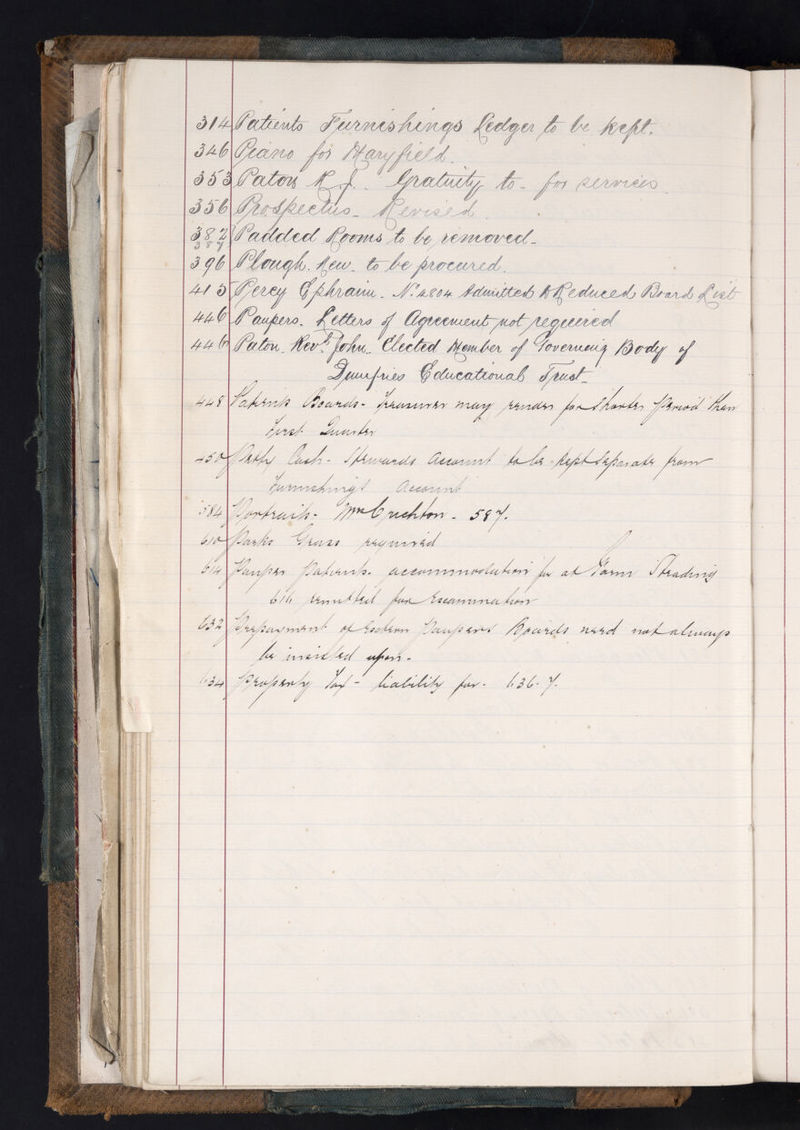 314 Patients Furnishings Ledger to be kept.
346 Piano for Maryfield.
353 Paton R. J. Gratuity to - for services
356 Prospectus - Revised.
382 Padded Rooms to be removed -
387
396 Plough. New. to be procured.
415 Percy Ephraim. No. 2804 Admitted to Reduced Board List
446 Paupers. Letters of Agreement not required
446 Paton. Revd. John. Elected Member of Governing Body of
Dumfries Educational Trust -
448 Patients Boards - Treasurer may render for Shorter Period than
first Quarter
450 Petty Cash - Stewards Account to be kept Separate from
Furnishings Account
584 Portrait - Mrs Crichton - 587.
610 Parks Grass required
614 Pauper Patients - accommodation for at Farm Steading
616 remitted for Examination
632 Prepayment of Pauper Boards need not always
be insisted upon -
634 Property Tax - liability for - 636. 7.